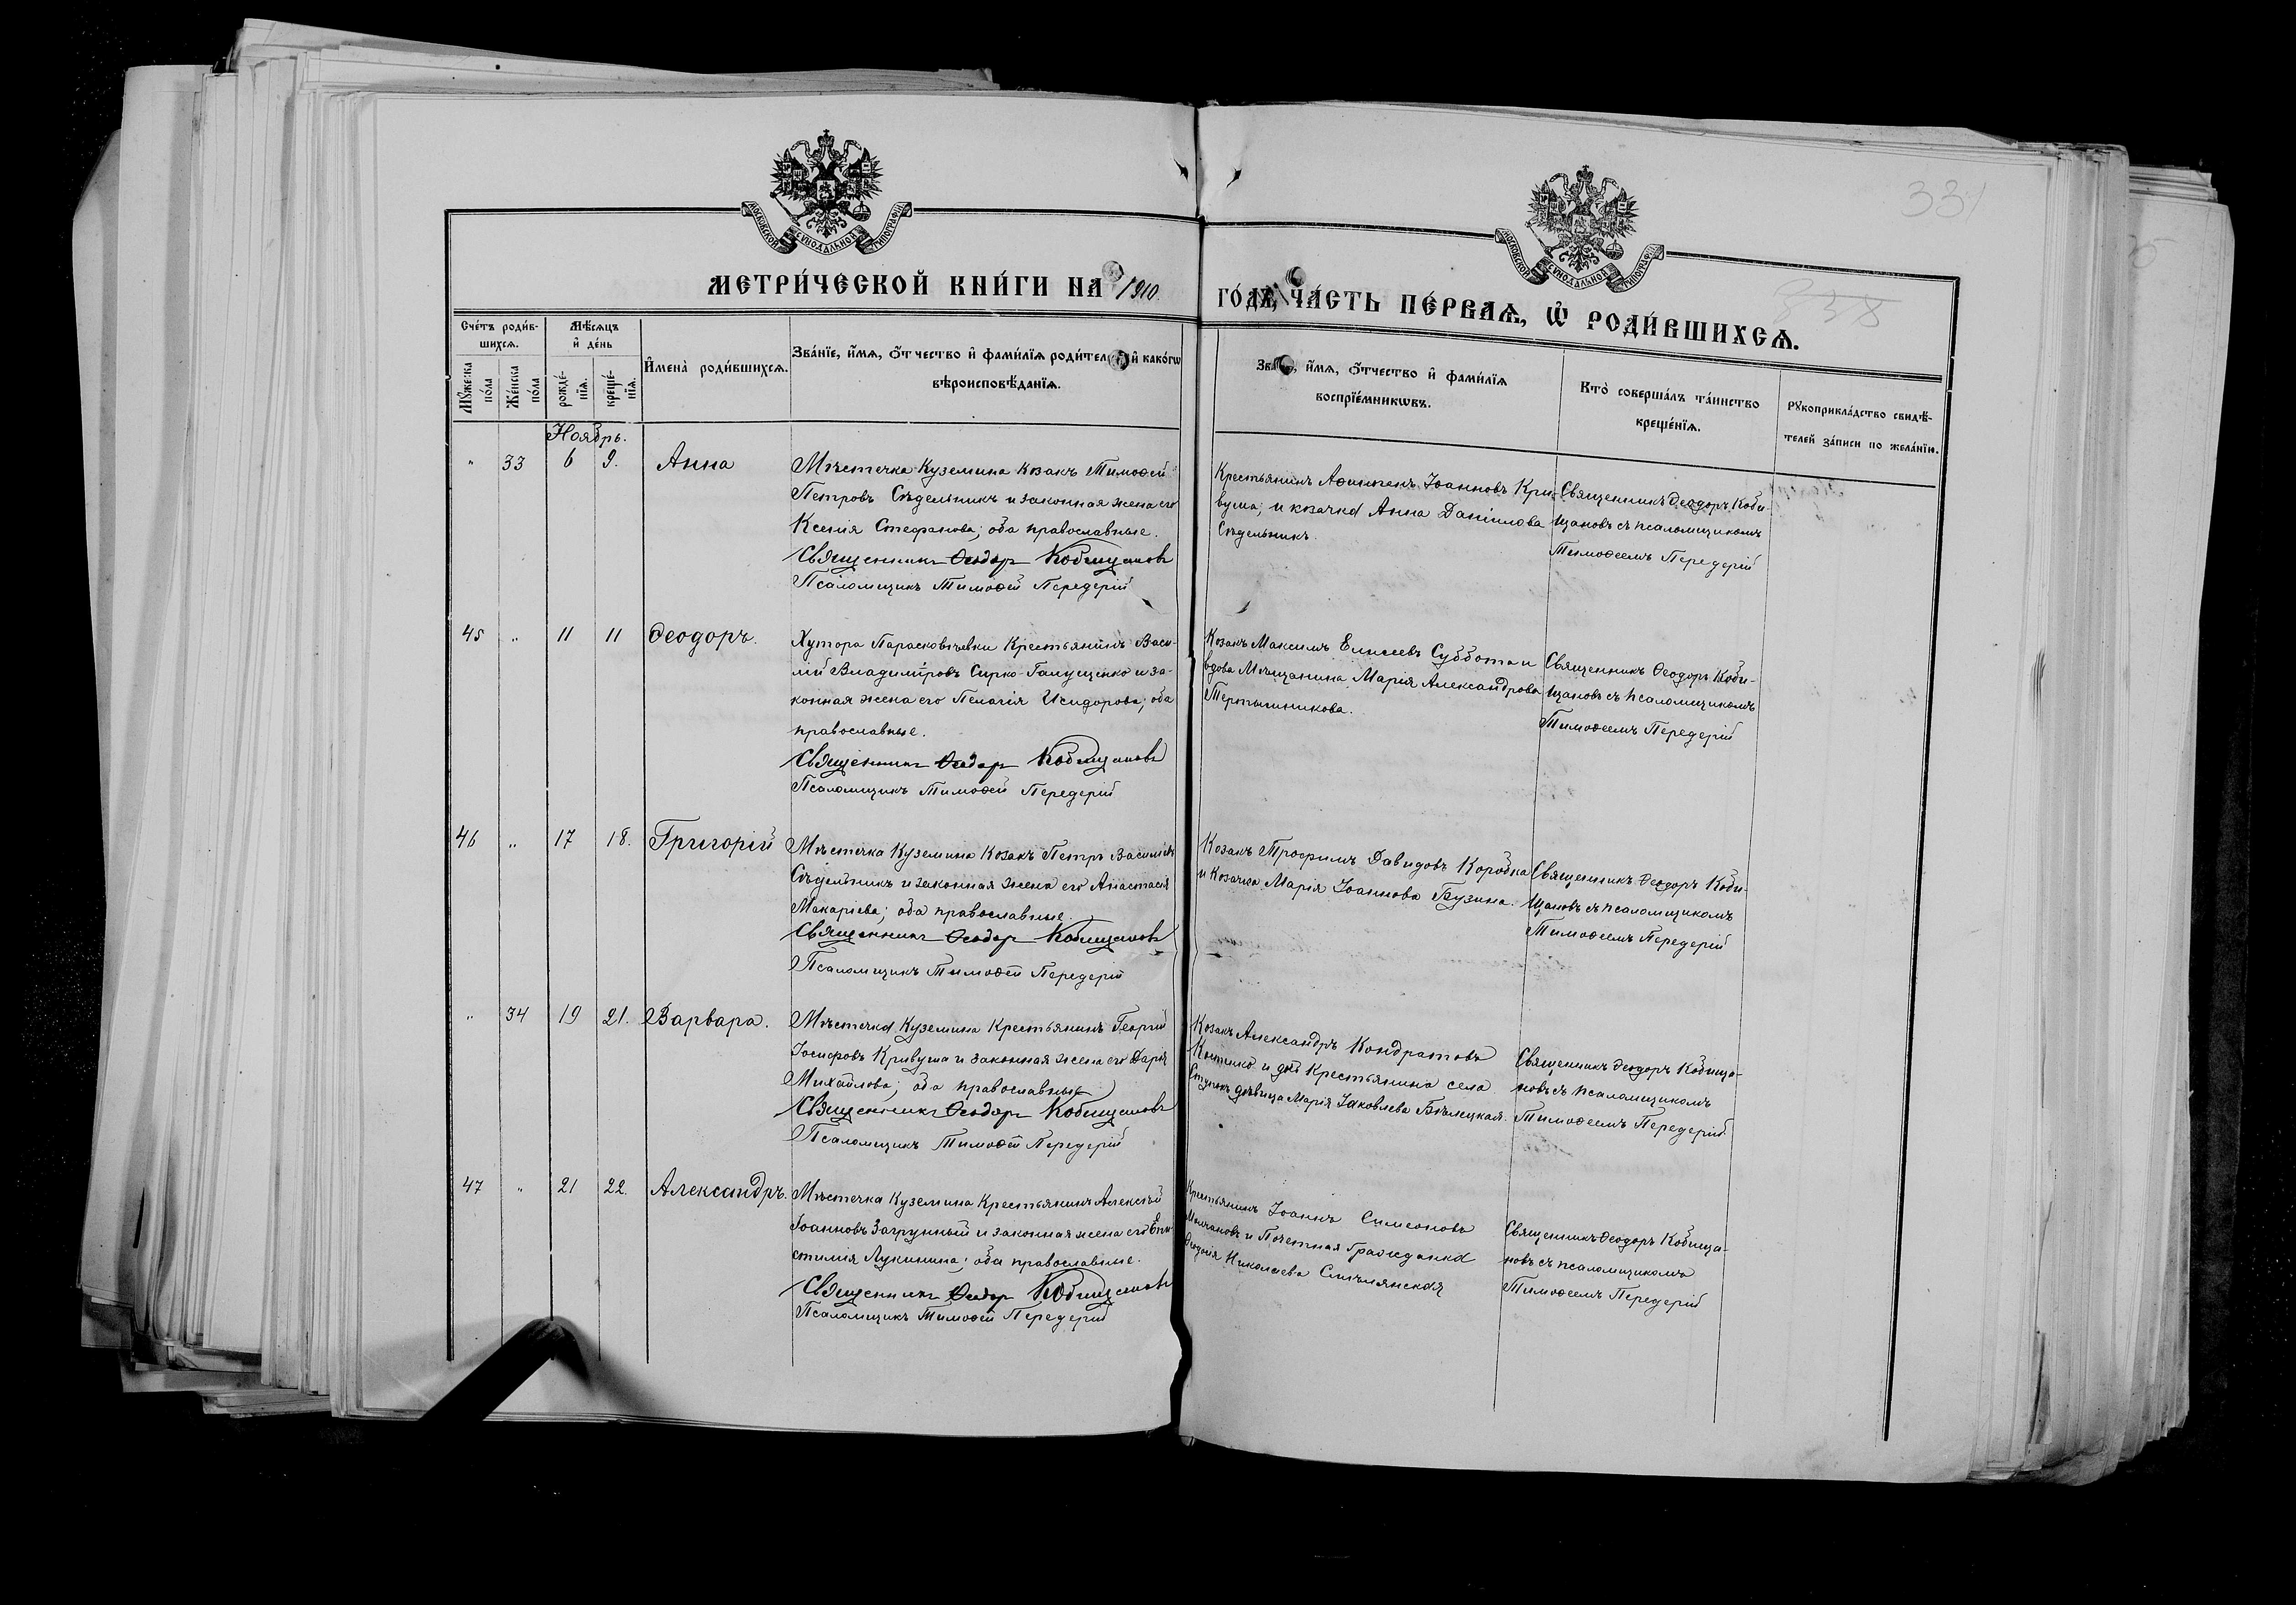 331
838
МОСКОВСКОЙ СѴНОДАЛЬНОЙ ТИПОГРАФІИ
МОСКОВСКОЙ СѴНОДАЛЬНОЙ ТИПОГРАФІИ
МЕТРИ́ЧЕСКОЙ КНИ́ГИ НА 1910
ГО́ДЪ, ЧА́СТЬ ПЕ́РВАѦ, Ѽ РОДИ́ВШИХСѦ.
Сче́тъ роди́в-
шихсѧ.
Мѣ́сѧцъ
и҆ де́нь
Мꙋ́жеска по́ла
Же́нска по́ла
рожде́-
нїѧ.
креще́-
нїѧ.
И҆мена̀ роди́вшихсѧ.
Зва́нїе, и҆́мѧ, ѻ҆́тчество и҆ фами́лїѧ роди́тел и҆ како́гѡ
вѣроисповѣ́данїѧ.
Зва , и҆́мѧ, ѻ҆́тчество и҆ фами́лїѧ
воспрїе́мникѡвъ.
Кто̀ соверша́лъ та́инство
креще́нїѧ.
Рꙋкоприкла́дство свидѣ́-
телей за́писи по жела́нїю.
Ноябрь.
" 33 6 9. Анна
Мѣстечка Куземина Козакъ Тимофей
Петровъ Сѣдельникъ и законная жена его
Ксенія Стефанова; оба православные.
Священникъ Ѳеодоръ Кобищановъ
Псаломщикъ Тимоѳей Передерій
Крестьянинъ Аѳиногенъ Іоанновъ Кри-
вуша; и козачка Анна Даніилова
Сѣдельникъ.
Священникъ Ѳеодоръ Коби-
щановъ съ псаломщикомъ
Тимоѳеемъ Передерій
45 " 11 11 Ѳеодоръ.
Хутора Парасковѣевки Крестьянинъ Васи-
лій Владиміровъ Сирко-Галущенко и за-
конная жена его Пелагія Исидорова; оба
православные.
Священникъ Ѳеодоръ Кобищановъ
Псаломщикъ Тимоѳей Передерій
Козакъ Максимъ Елисеевъ Суббота и
вдова Мѣщанина Марія Александрова
Тертышникова.
Священникъ Ѳеодоръ Коби-
щановъ съ псаломщикомъ
Тимоѳеемъ Передерій
46 " 17 18. Григорій
Мѣстечка Куземина Козакъ Петръ Василіевъ
Сѣдельникъ и законная жена его Анастасія
Макаріева; оба православные.
Священникъ Ѳеодоръ Кобищановъ
Псаломщикъ Тимоѳей Передерій
Козакъ Трофимъ Давидовъ Коробка
и Козачка Марія Іоаннова Бузина.
Священникъ Ѳеодоръ Коби-
щановъ съ псаломщикомъ
Тимоѳеемъ Передерій
" 34 19 21. Варвара.
Мѣстечка Куземина Крестьянинъ Георгій
Іосифовъ Кривуша и законная жена его Дарія
Михайлова; оба православные
Священникъ Ѳеодоръ Кобищановъ
Псаломщикъ Тимоѳей Передерій
Козакъ Александръ Кондратовъ
и Крестьянина села
дѣвица Марія Іаковлева Бѣлецкая.
Священникъ Ѳеодоръ Кобища-
новъ съ псаломщикомъ
Тимоѳеемъ Передерій
47 " 21 22. Александръ.
Мѣстечка Куземина Крестьянинъ Алексѣй
Іоанновъ Загрунный и законная жена его Епи-
стимія Лукинина; оба православные.
Священникъ Ѳеодоръ Кобищановъ
Псаломщикъ Тимоѳей Передерій
Крестьянинъ Іоаннъ Симеоновъ
Молчановъ и Почетная Гражданка
Ѳеодосія Николаева Смѣлянская
Священникъ Ѳеодоръ Кобища-
новъ съ псаломщикомъ
Тимоѳеемъ Передерій